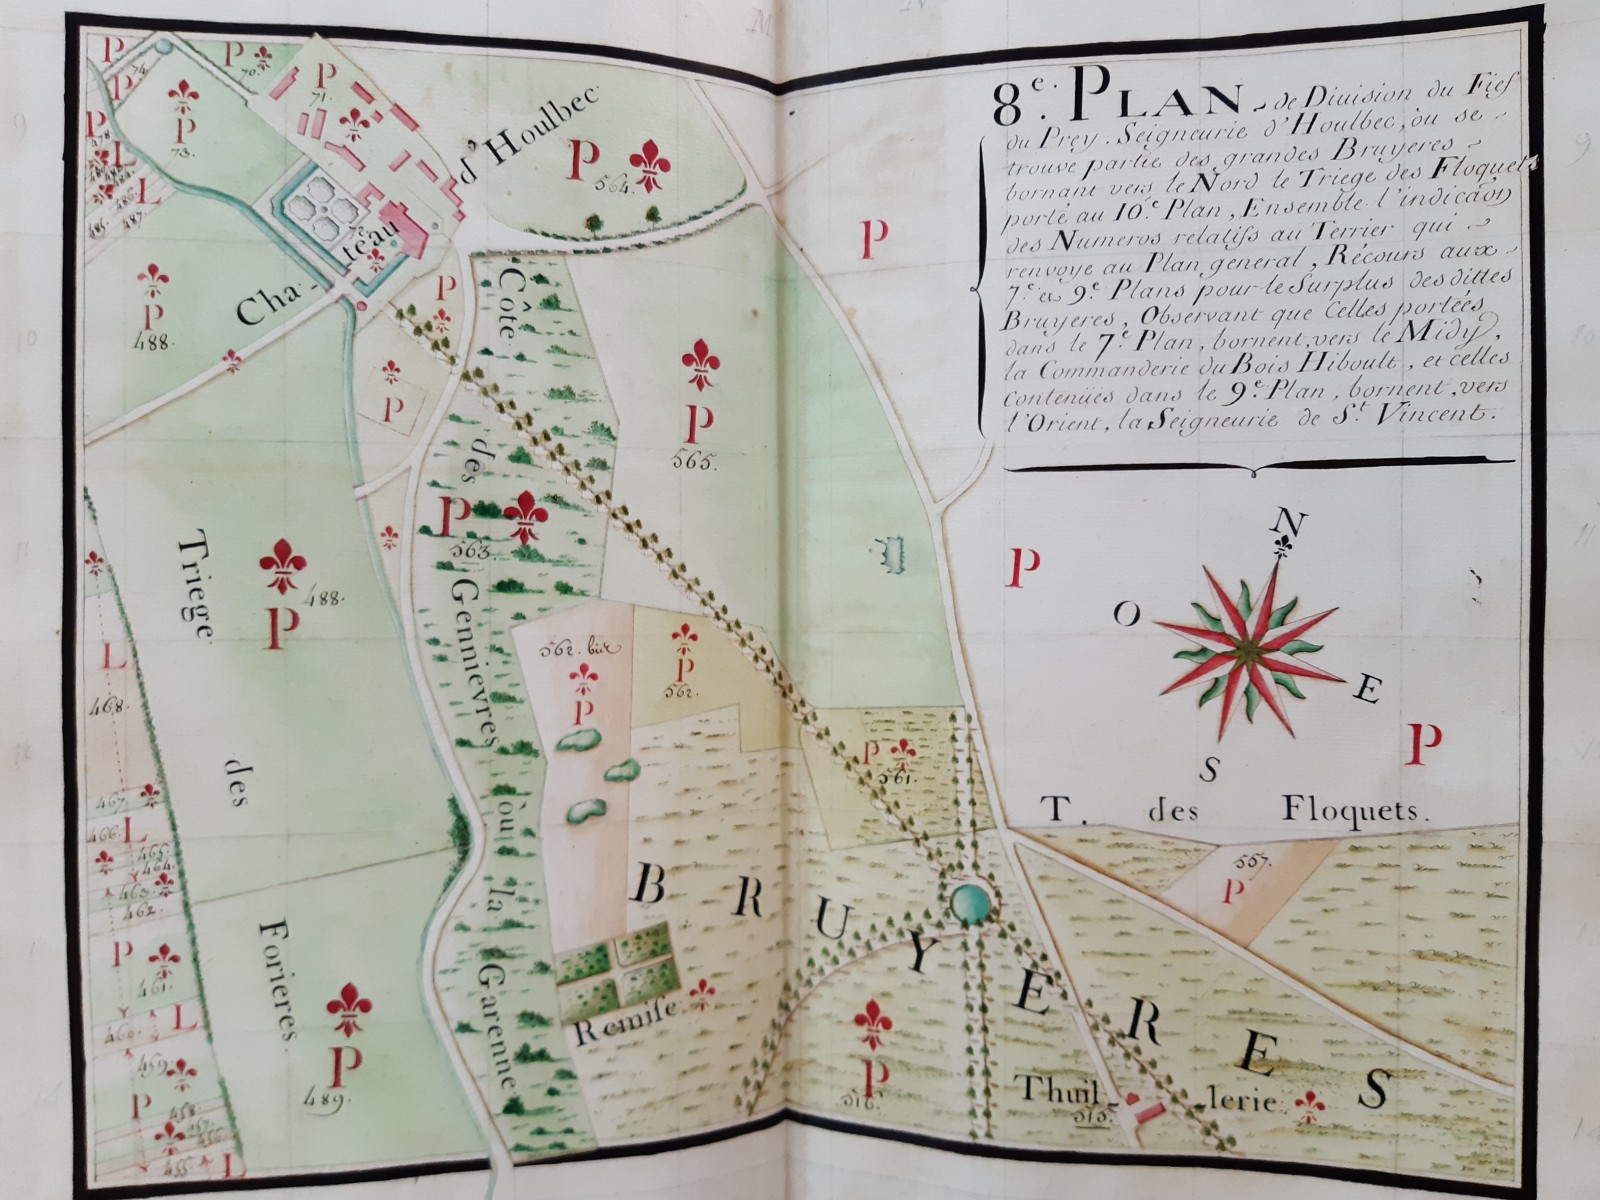 8e. PLAN de Division du Fief
du Prey. Seigneurie d'Houlbec, où se
trouve partie des grandes Bruyeres
bornant vers le Nord le Triege des Floquets
porté au 10e. Plan, Ensemble l'indicãon
des Numeros relatifs au Terrier qui
renvoye au Plan general, Récours aux
7e. et 9e. Plans pour le Surplus des dittes
Bruyeres, Observant que Celles portées
dans le 7e. Plan, bornent, vers le Midy,
la Commanderie du Bois Hiboult, et celles
Contenües dans le 9e. Plan, bornent, vers
l'Orient, la Seigneurie de St. Vincent.
N
O
E
S
P
P
P
T. des Floquets.
557.
P
P
74.
P
P
70.
P
71.
P
73.
P
L
L
486.
485.
487.
Cha-
teau
d'Houlbec
P
564.
P
488.
P
P
P
565.
Côte
des
Gennievres
où
la
Garenne
P
563.
Triege
des
Forieres.
488.
P
562. bis
P
P
562.
P
561.
L
468.
467.
466. L
465.
464.
463.
462.
P
461.
460. L
459.
P
458.
457.
456.
455.
L
P
489.
BRUYERES
Remise
P
516.
Thuil-
lerie
515.